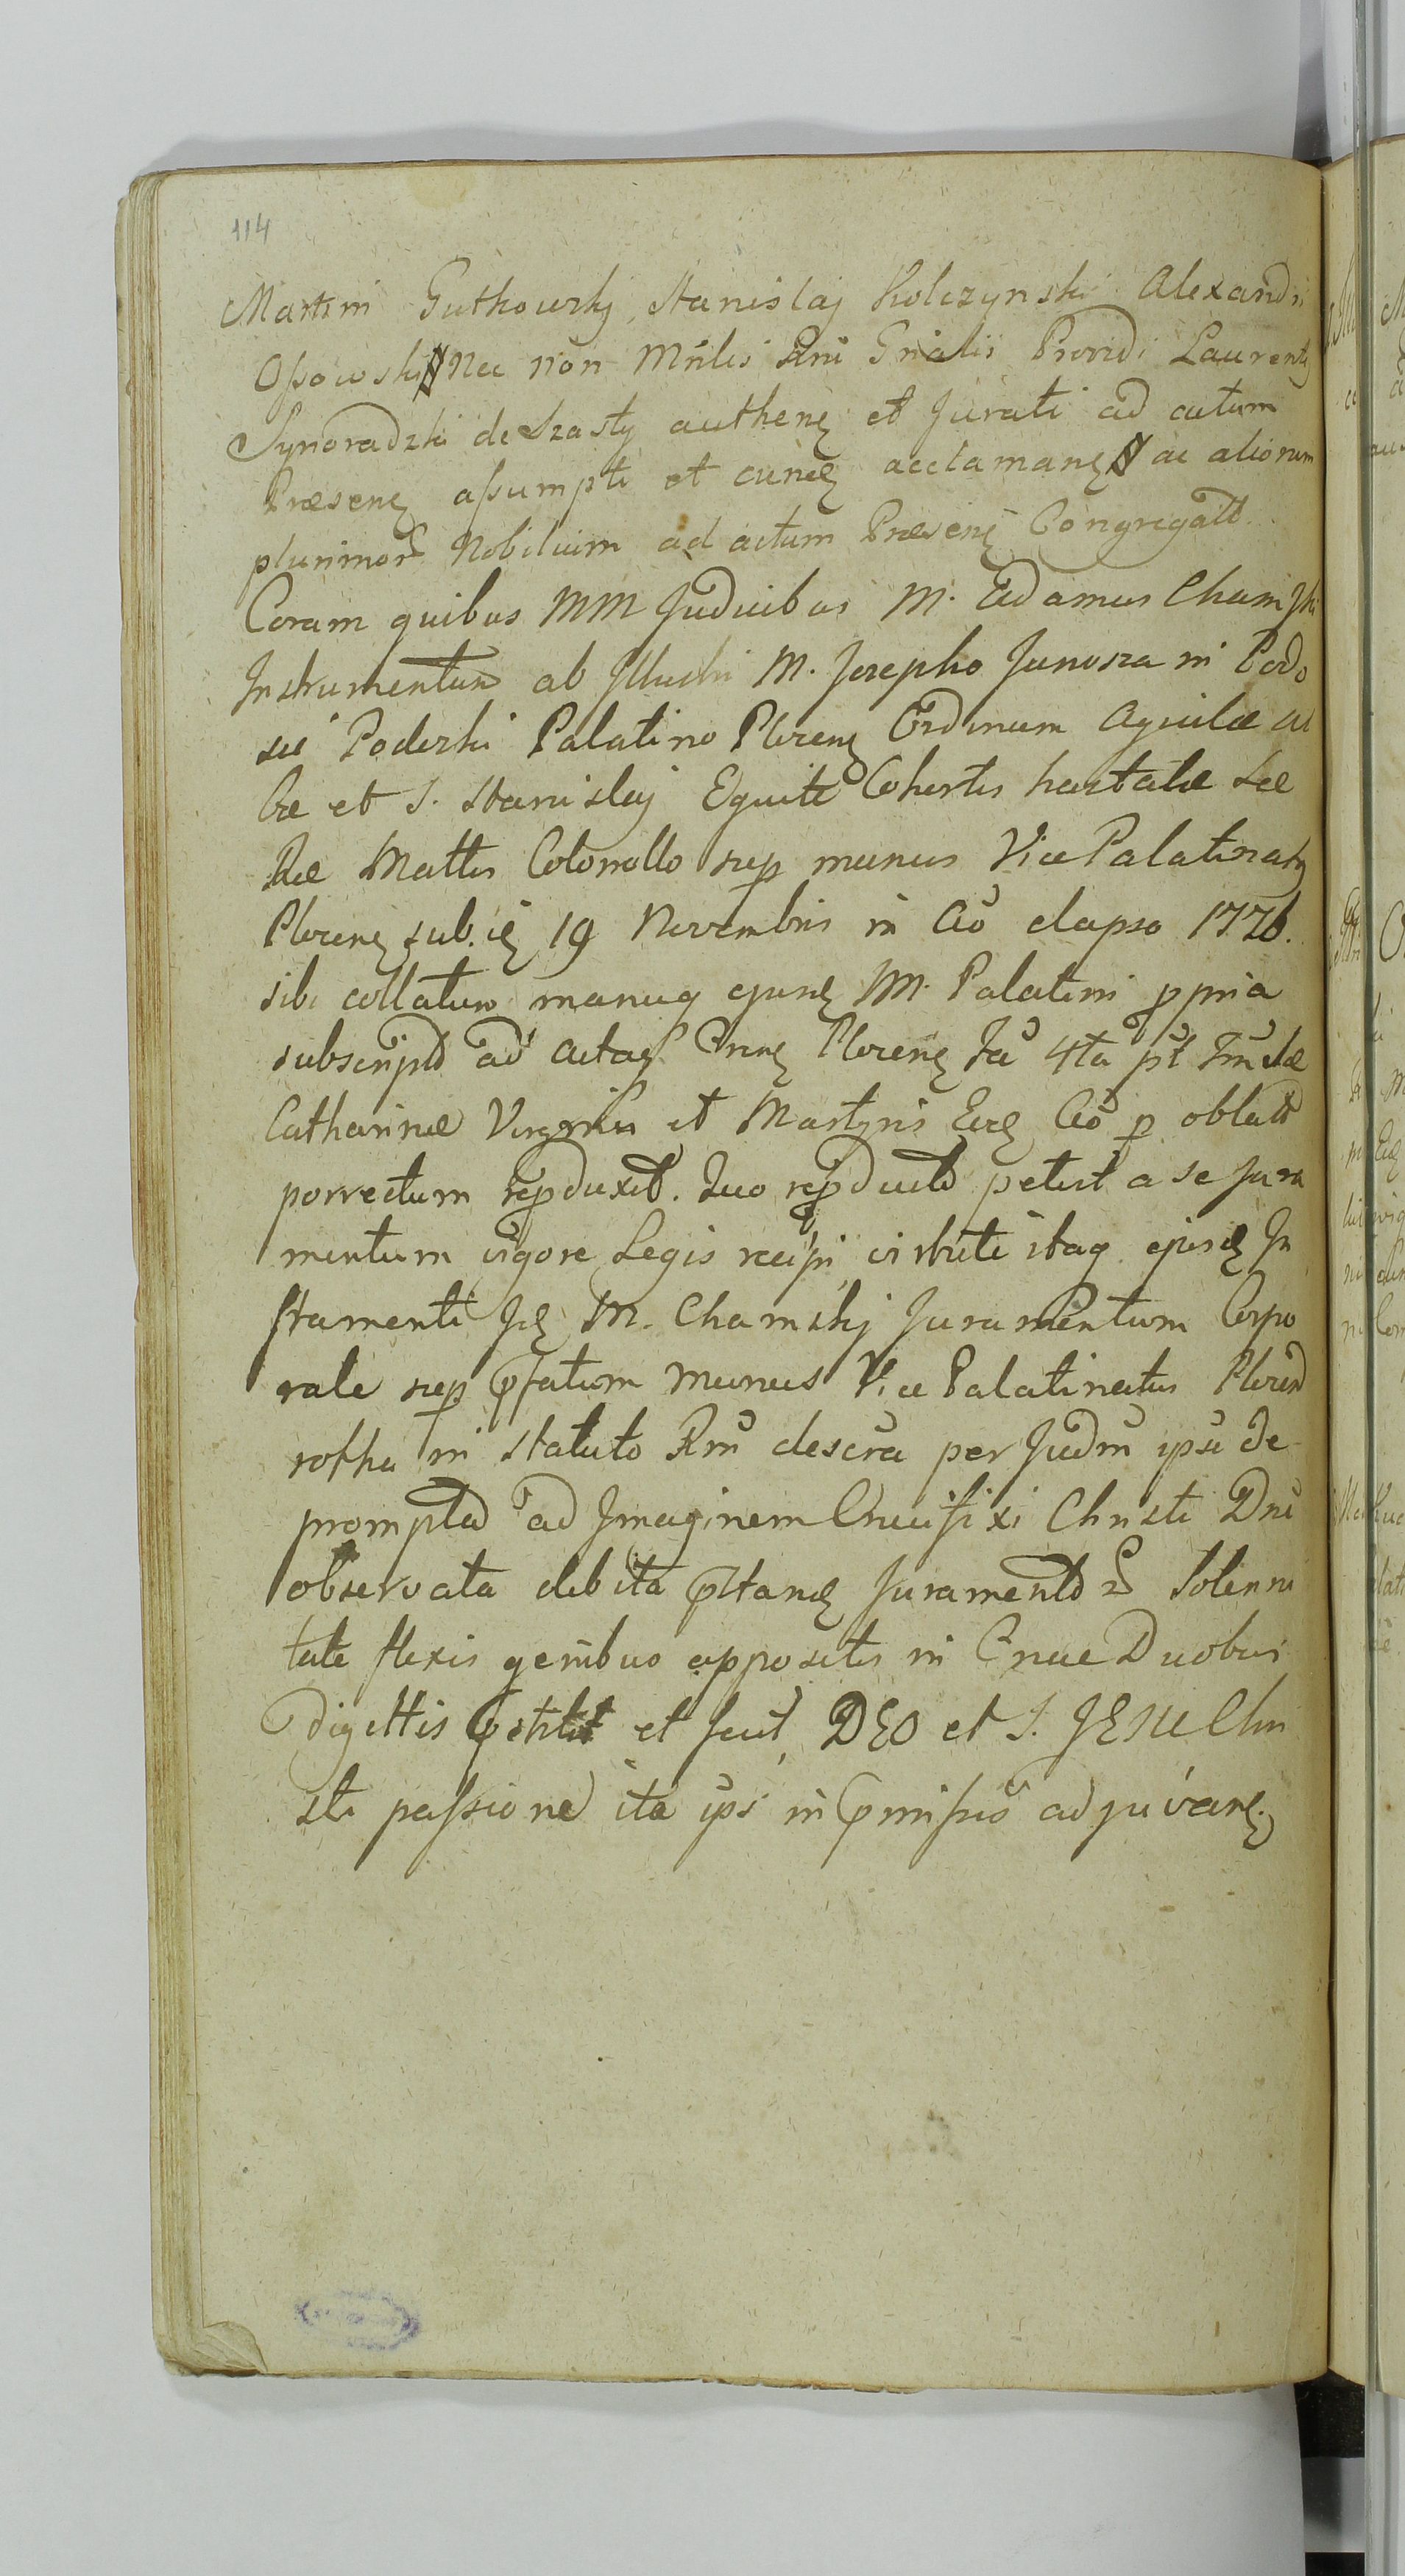 114
Martini Gutkowskj, Stanislaj Kolczynski Alexandri
Ossowski Nec non Mnlis Rni Gnalis Providi Laurentÿ
Synoradzki de Szasty authenz et Jurati ad actum
Præsenz assumpti et cunez acclamanz ac aliorum
plurimor Nobilium ad actum Præsenz Congregatt.
Coram quibus MM Judicibus M. Adamus Chamski
Instrumentum ab Illustri M. Josepho Junosza in Podo
sie Podoski Palatino Plocenz Ordinum Aquilæ al
bæ et S. Stanislaj Equite Cohortis hastatæ Sæ
Ræ Mattis Colonollo sup munus Vice Palatinatus
Plocenz sub. iz 19 Novembris in Ao elapso 1776.
sibi collatum manuq ejusz M. Palatini ppria
subscript ad acta Crnz Plocenz Fa 4ta pt Fm stæ
Catharinæ Virginis et Martyris Eoz Ao p oblatt
porrectum repduxit. Quo repducto petiit a se Jura
mentum vigore Legis recipi virtute itaq ejusz In
strumenti Iz M. Chamskj Juramentum Corpo
rale sup pfatum munus Vice Palatinatus Plocen
rottha in Statuto Rni descra per Judm ipsi de
prompta ad Imaginem Crucifixi Christi Dni
observata debita pstanz Juramentor Solenni
tate flexis genibus appositis in Cruce Duobus
digittis pstitit et fecit, DEO et S. JESU Chri
sti passione ita ipsi in pmissis adjuvanz.